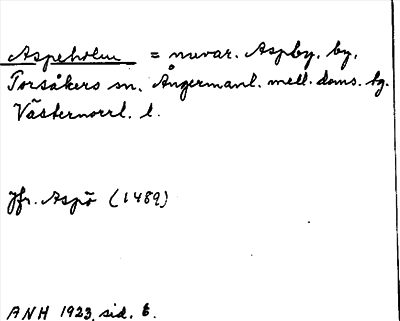 Aspeholm = nuvar. Aspby, by,
Torsåkers sn, Ångermanl. mell. doms. hg.
Västernorrl. l.
Jfr. Aspö (1489)
ANH 1923, sid. 6.